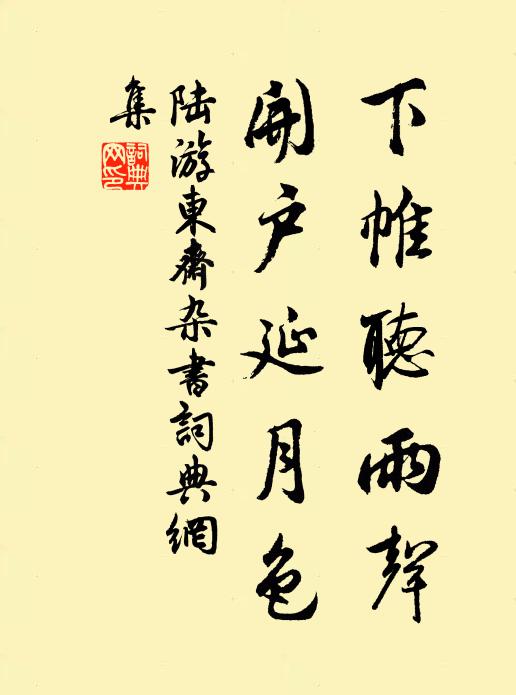 下帷聽雨聲
開户延月色
陆游東齋杂書詞典網
集
詞典網印